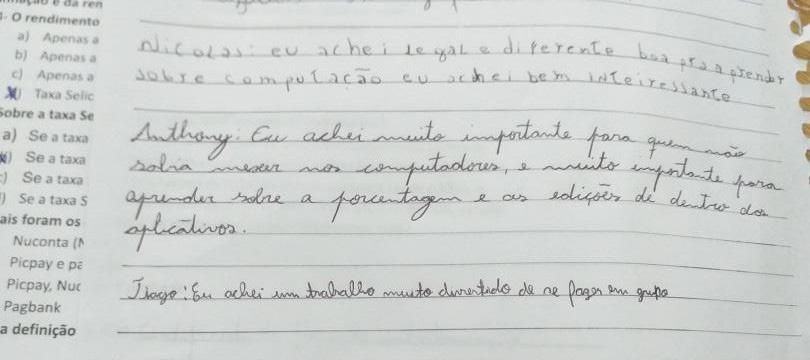 O rendimento
a) Apenas a
b) Apenas a
c) Apenas a
Taxa Selic
Sobre a taxa Se
a) Se a taxa
) Se a taxa
) Se a taxa
) Se a taxa S
ais foram os
Nuconta (N
Picpay e pa
Picpay, Nuc
Pagbank
a definição
Nicolas: eu achei legal e diferente boa pra aprendr
sobre computação eu achei bem inteiressante
Anthony: Eu achei muito importante para quem não
sabia mexer nos computadores, e muito importante para
aprender sobre a porcentagem e as edições de dentro dos
aplicativos.
Tiago: Eu achei um trabalho muito divertido de se fazer em grupo